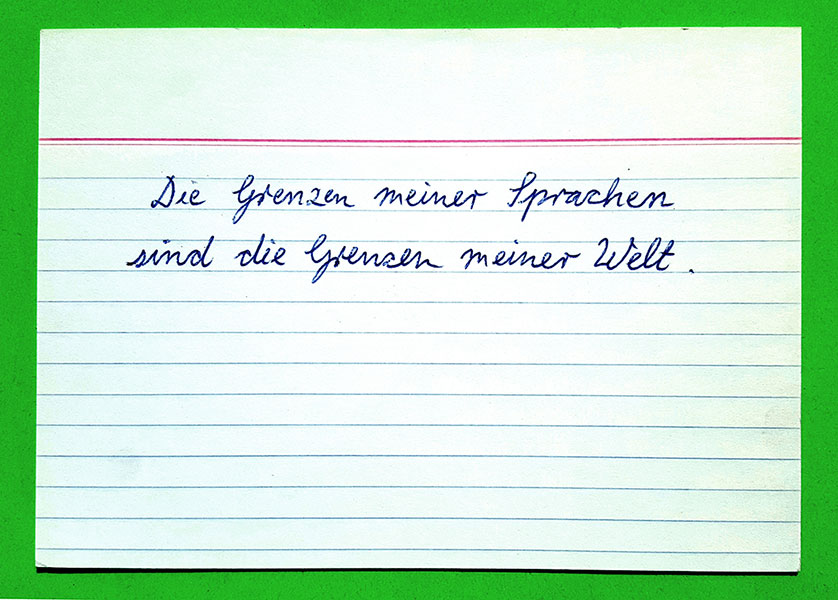 Die Grenzen meiner Sprachen
sind die Grenzen meiner Welt.